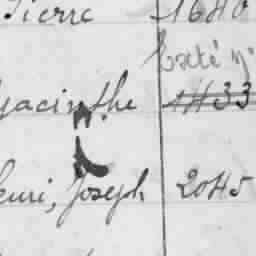 Pierre 1680
Exté n°
Hyacinthe 1433
Henri, Joseph 2045